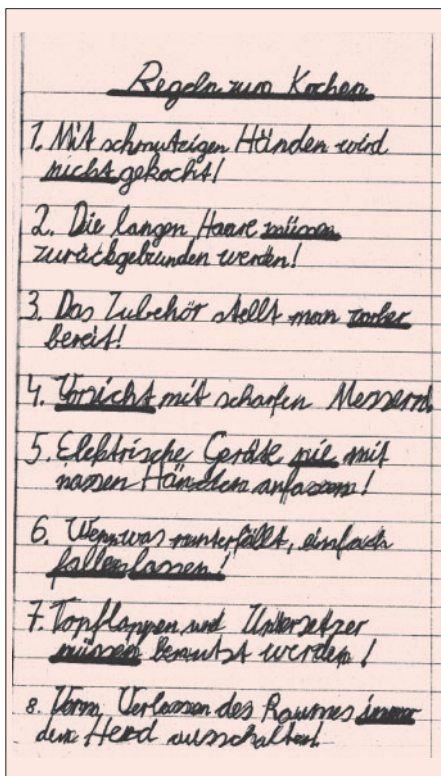 Regeln zum Kochen
1. Mit schmutzigen Händen wird
nicht gekocht!
2. Die langen Haare müssen
zurückgebunden werden!
3. Das Zubehör stellt man vorher
bereit!
4. Vorsicht mit scharfen Messern.
5. Elektrische Geräte nie mit
nassen Händen anfassen!
6. Wenn was runterfällt, einfach
fallen lassen!
7. Topflappen und Untersetzer
müssen benutzt werden!
8. Vorm Verlassen des Raumes immer
den Herd ausschalten!